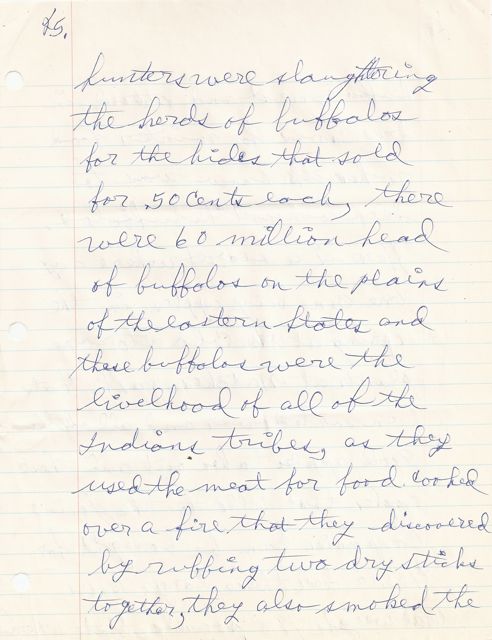 45.
hunters were slaughtering
the herds of buffalos
for the hides that sold
for .50 Cents each, there
were 60 million head
of buffalos on the plains
of the eastern States and
these buffalos were the
livelhood of all of the
Indians tribes, as they
used the meat for food cooked
over a fire that they discovered
by rubbing two dry sticks
together, they also smoked the